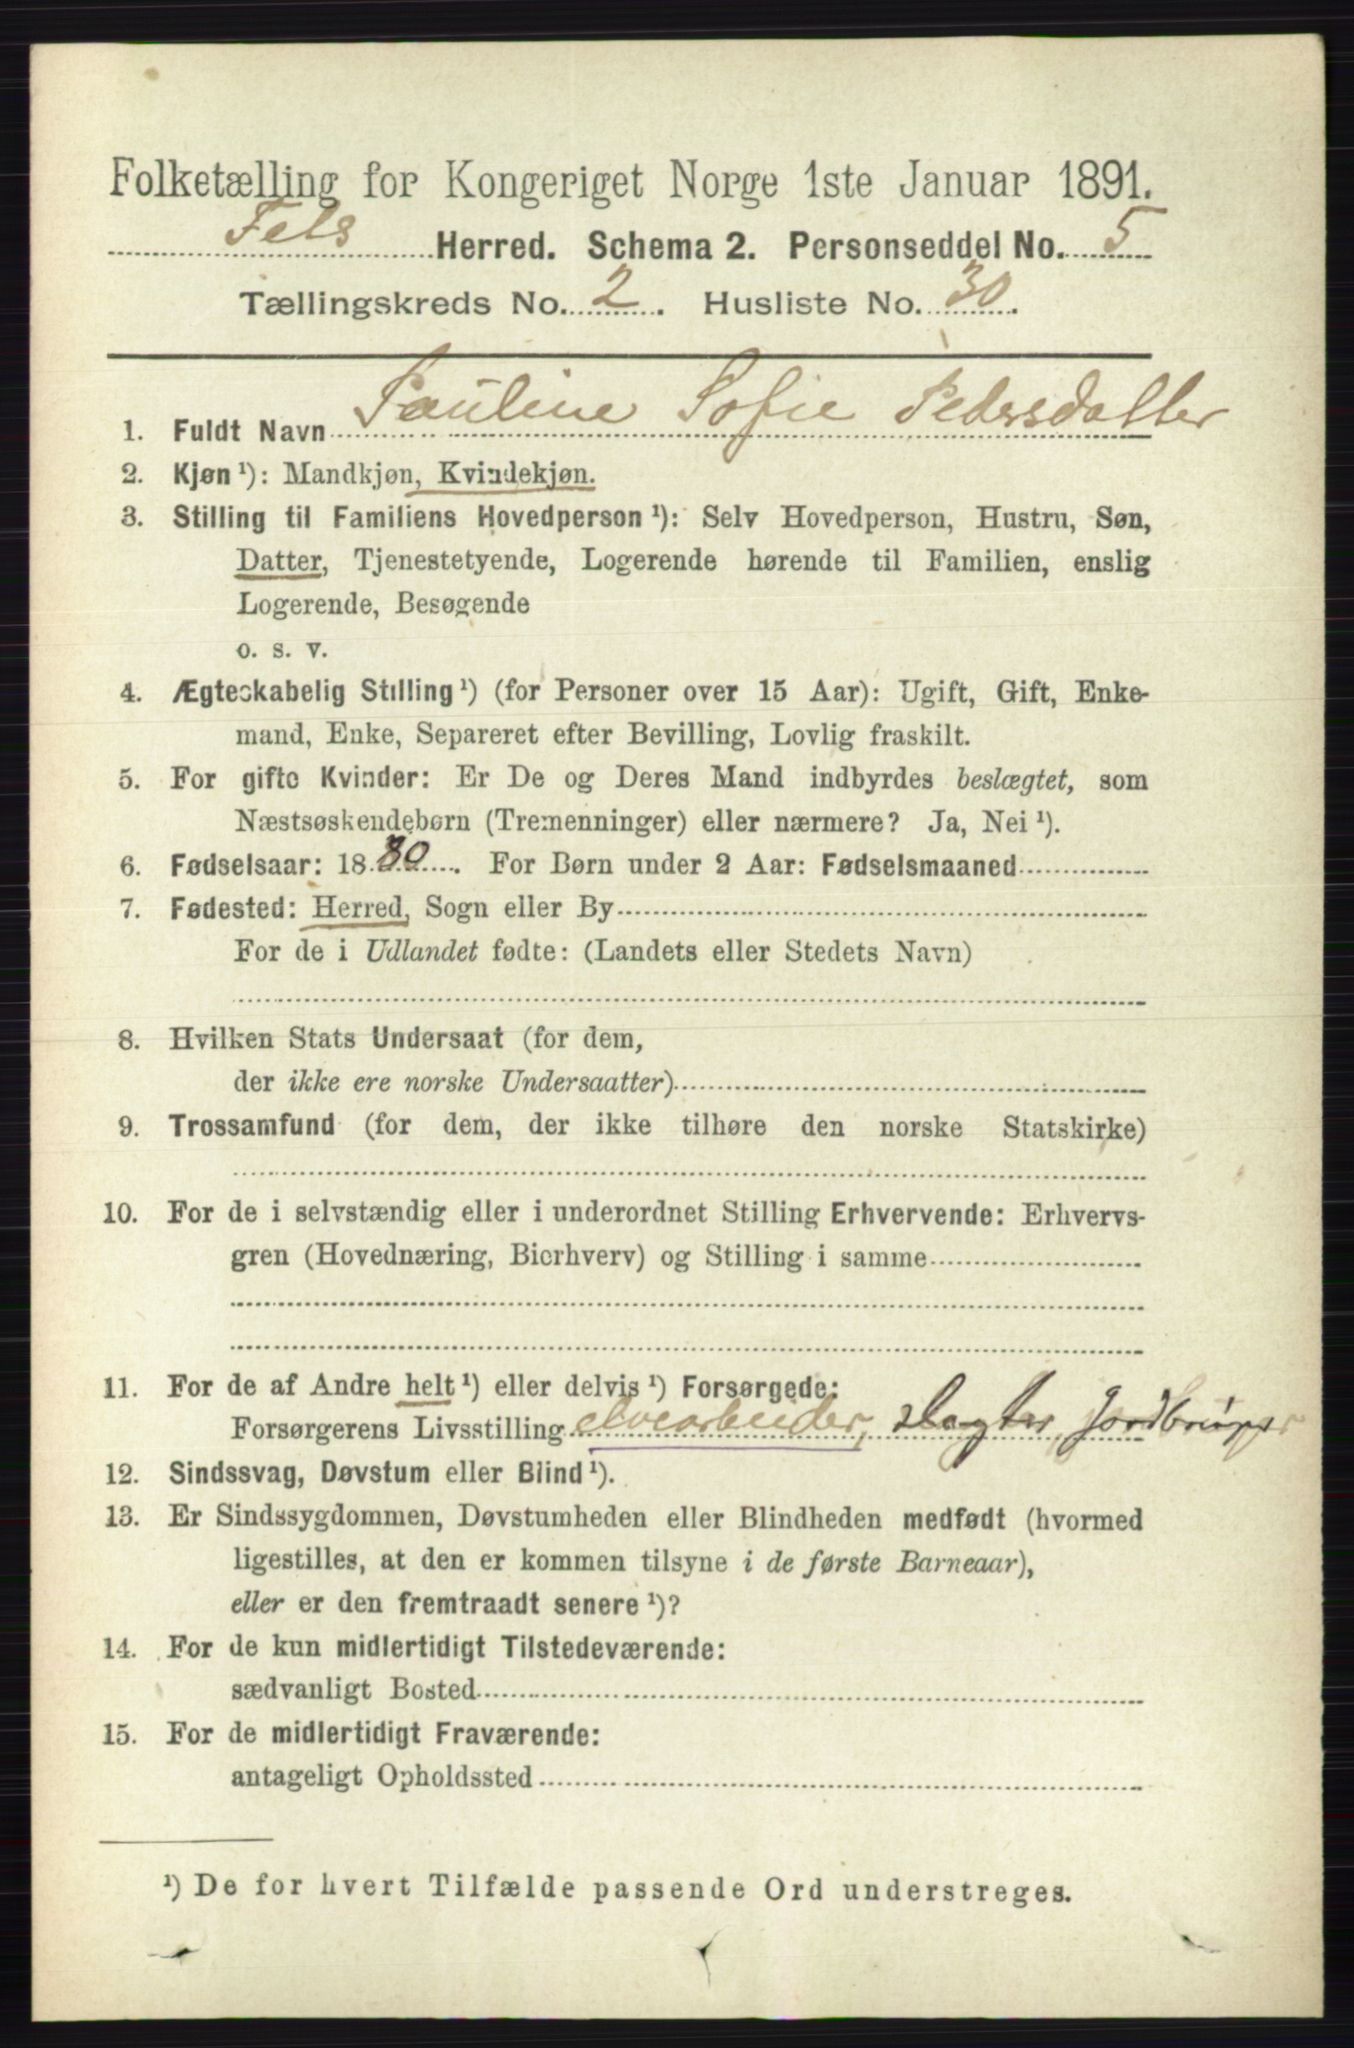 Folketælling for Kongeriget Norge 1ste Januar 1891.
Fets Herred. Schema 2. Personseddel No. 5
Tællingskreds No. 2. Husliste No. 30.
1. Fuldt Navn Pauline Sofie Pedersdatter
2. Kjøn ¹): Mandkjøn, Kvindekjøn.
3. Stilling til Familiens Hovedperson ¹): Selv Hovedperson, Hustru, Søn,
Datter, Tjenestetyende, Logerende hørende til Familien, enslig
Logerende, Besøgende
o. s. v.
4. Ægteskabelig Stilling ¹) (for Personer over 15 Aar): Ugift, Gift, Enke-
mand, Enke, Separeret efter Bevilling, Lovlig fraskilt.
5. For gifte Kvinder: Er De og Deres Mand indbyrdes beslægtet, som
Næstsøskendebørn (Tremenninger) eller nærmere? Ja, Nei ¹).
6. Fødselsaar: 1880. For Børn under 2 Aar: Fødselsmaaned
7. Fødested: Herred, Sogn eller By
For de i Udlandet fødte: (Landets eller Stedets Navn)
8. Hvilken Stats Undersaat (for dem,
der ikke ere norske Undersaatter)
9. Trossamfund (for dem, der ikke tilhøre den norske Statskirke)
10. For de i selvstændig eller i underordnet Stilling Erhvervende: Erhvervs-
gren (Hovednæring, Bierhverv) og Stilling i samme
11. For de af Andre helt ¹) eller delvis ¹) Forsørgede:
Forsørgerens Livsstilling elvearbeider, slagter, Jordbruger
12. Sindssvag, Døvstum eller Blind ¹).
13. Er Sindssygdommen, Døvstumheden eller Blindheden medfødt (hvormed
ligestilles, at den er kommen tilsyne i de første Barneaar),
eller er den fremtraadt senere ¹)?
14. For de kun midlertidigt Tilstedeværende:
sædvanligt Bosted
15. For de midlertidigt Fraværende:
antageligt Opholdssted
¹) De for hvert Tilfælde passende Ord understreges.